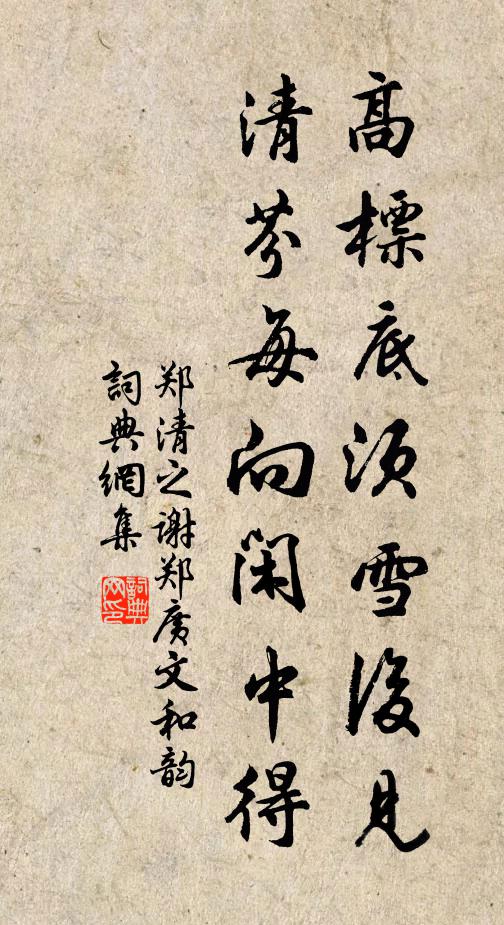 高標底須雪後見
清芬每向閑中得
郑清之谢郑廣文和韵
詞典網集
詞典網印